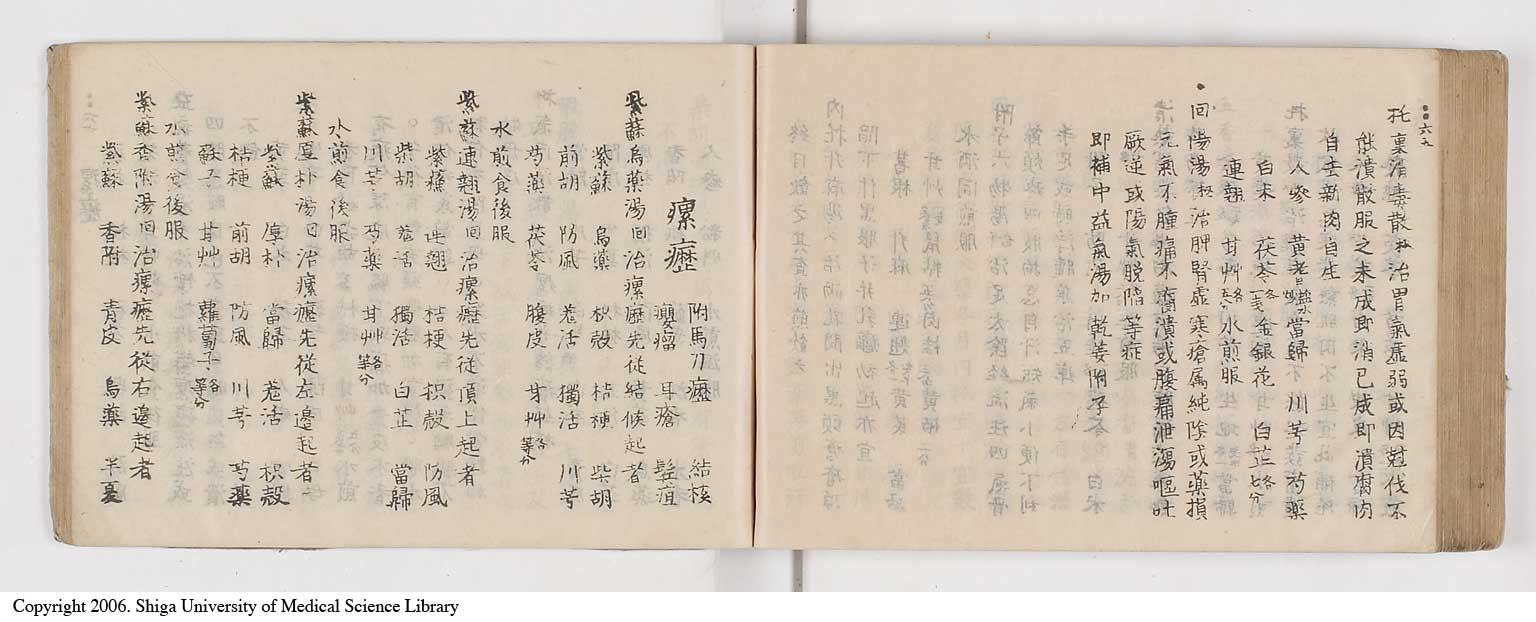 六五
托裏消毒散 治胃氣虛弱或因尅伐不
能潰散服之未成即消已成即潰腐肉
自去新肉自生
人參 黃耆 當歸 川芎 芍藥
白朮 茯苓各一戔 金銀花 白芷各七分
連翹 甘艸各五分 水煎服
回陽湯 治脾腎虛寒瘡属純陰或藥損
元氣不腫痛不腐潰或腹痛泄瀉嘔吐
厥逆或陽氣脱陷等症
即補中益氣湯加乾姜附子
瘰癧 附馬刀癧 結核
癭瘤 耳瘡 髭疽
紫蘇烏藥湯 回 治瘰癧先從結候起者
紫蘇 烏藥 枳殼 桔梗 柴胡
前胡 防風 羗活 獨活 川芎
芎藥 茯苓 腹皮 甘艸各等分
水煎食後服
紫蘇連翹湯 回 治瘰癧先從頂上起者
紫蘇 連翹 桔梗 枳殼 防風
柴胡 羗活 獨活 白芷 當歸
川芎 芍藥 甘艸各等分
水煎食後服
紫蘇厚朴湯 回 治瘰癧先從左邊起者
紫蘇 厚朴 當歸 羗活 枳殼
桔梗 前胡 防風 川芎 芍藥
蘇子 甘艸 蘿蔔子各等分
水煎食後服
紫蘇香附湯 回 治瘰癧先從右邊起者
紫蘇 香附 青皮 烏藥 半夏
Copyright 2006. Shiga University of Medical Science Library